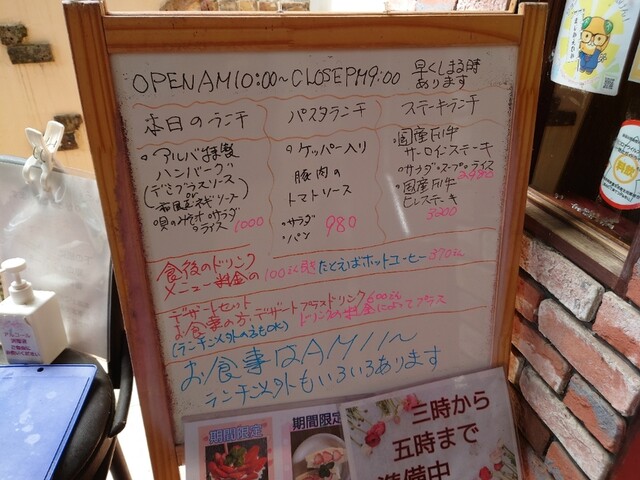 OPEN AM10:00〜CLOSE PM9:00 早くしまる時
あります
本日のランチ
・アルバ特製
ハンバーグ
(デミグラスソース)
or
サラダ
ライス
1000
パスタランチ
・ケッパー入り
豚肉の
トマトソース
・サラダ
・パン
980
ステーキランチ
・国産牛
サーロインステーキ
・サラダ・スープ・ライス
2980
・国産牛
ヒレステーキ
3200
食後のドリンク
メニュー料金の 100えん引 たとえばホットコーヒー370えん
デザートセット
お食事の方、デザートプラスドリンク600えん
ドリンク料金によってプラス
(ランチ以外の方もOK)
お食事はAM11〜
ランチ以外もいろいろあります
期間限定
期間限定
三時から
五時まで
準備中
アルコール